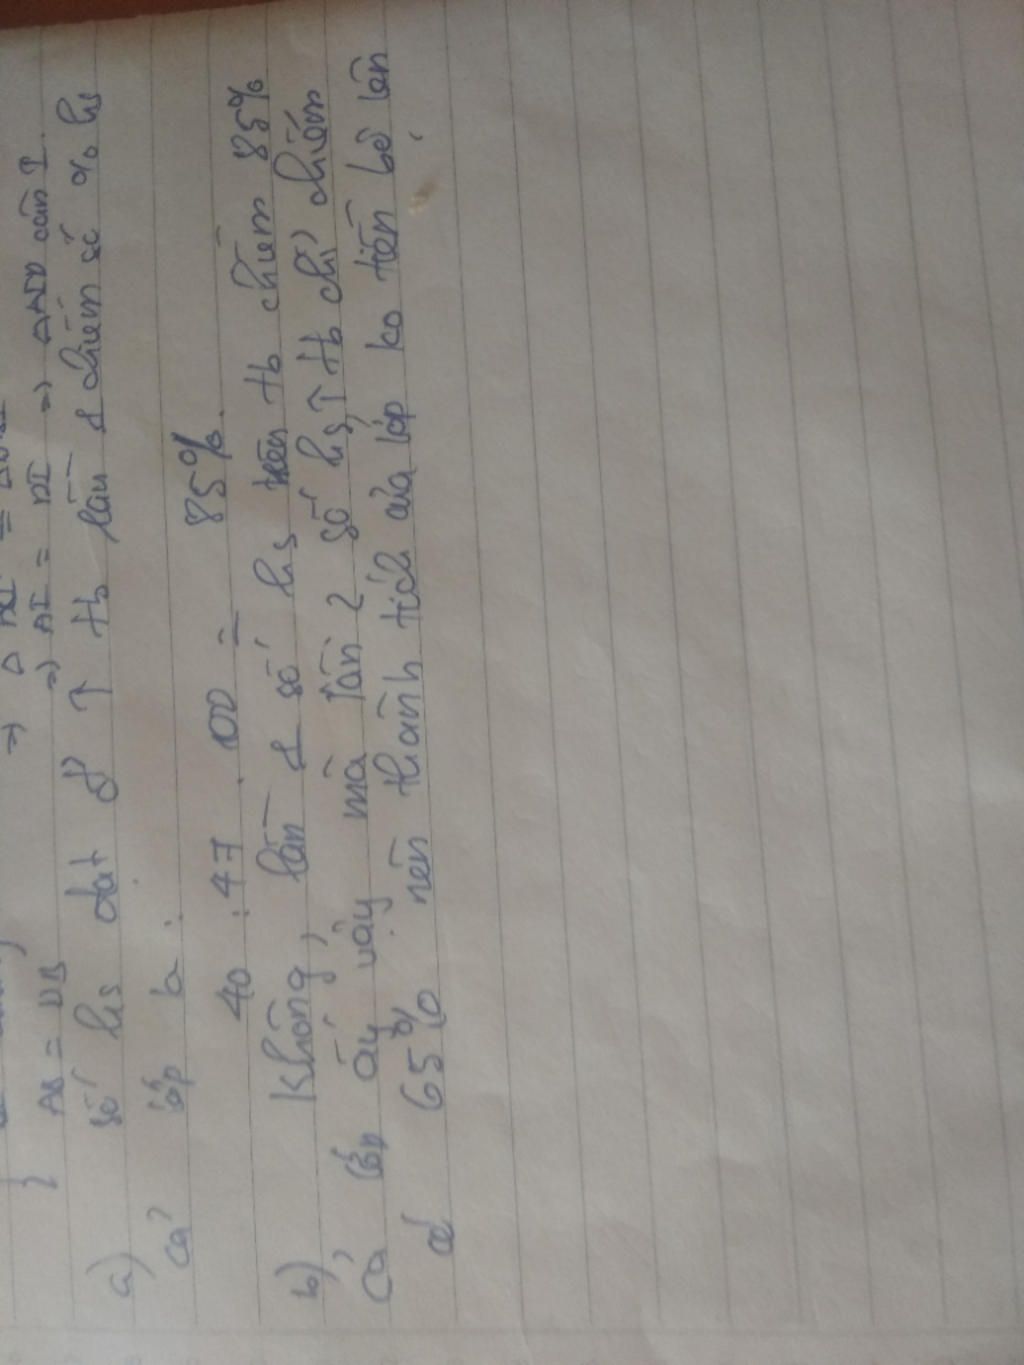 => △ ACI =
} AB = DB => AI = DI => △AID cân I.
a) số hs đạt đ ↑ tb lần 1 chiếm số % hs
cả lớp là :
40 : 47 . 100 = 85%.
b) Không, lần 1 số hs trên tb chiếm 85%
cả lớp ấy vậy mà lần 2 số hs ↑ tb chỉ chiếm
có 65% nên thành tích của lớp ko tiến bộ lên